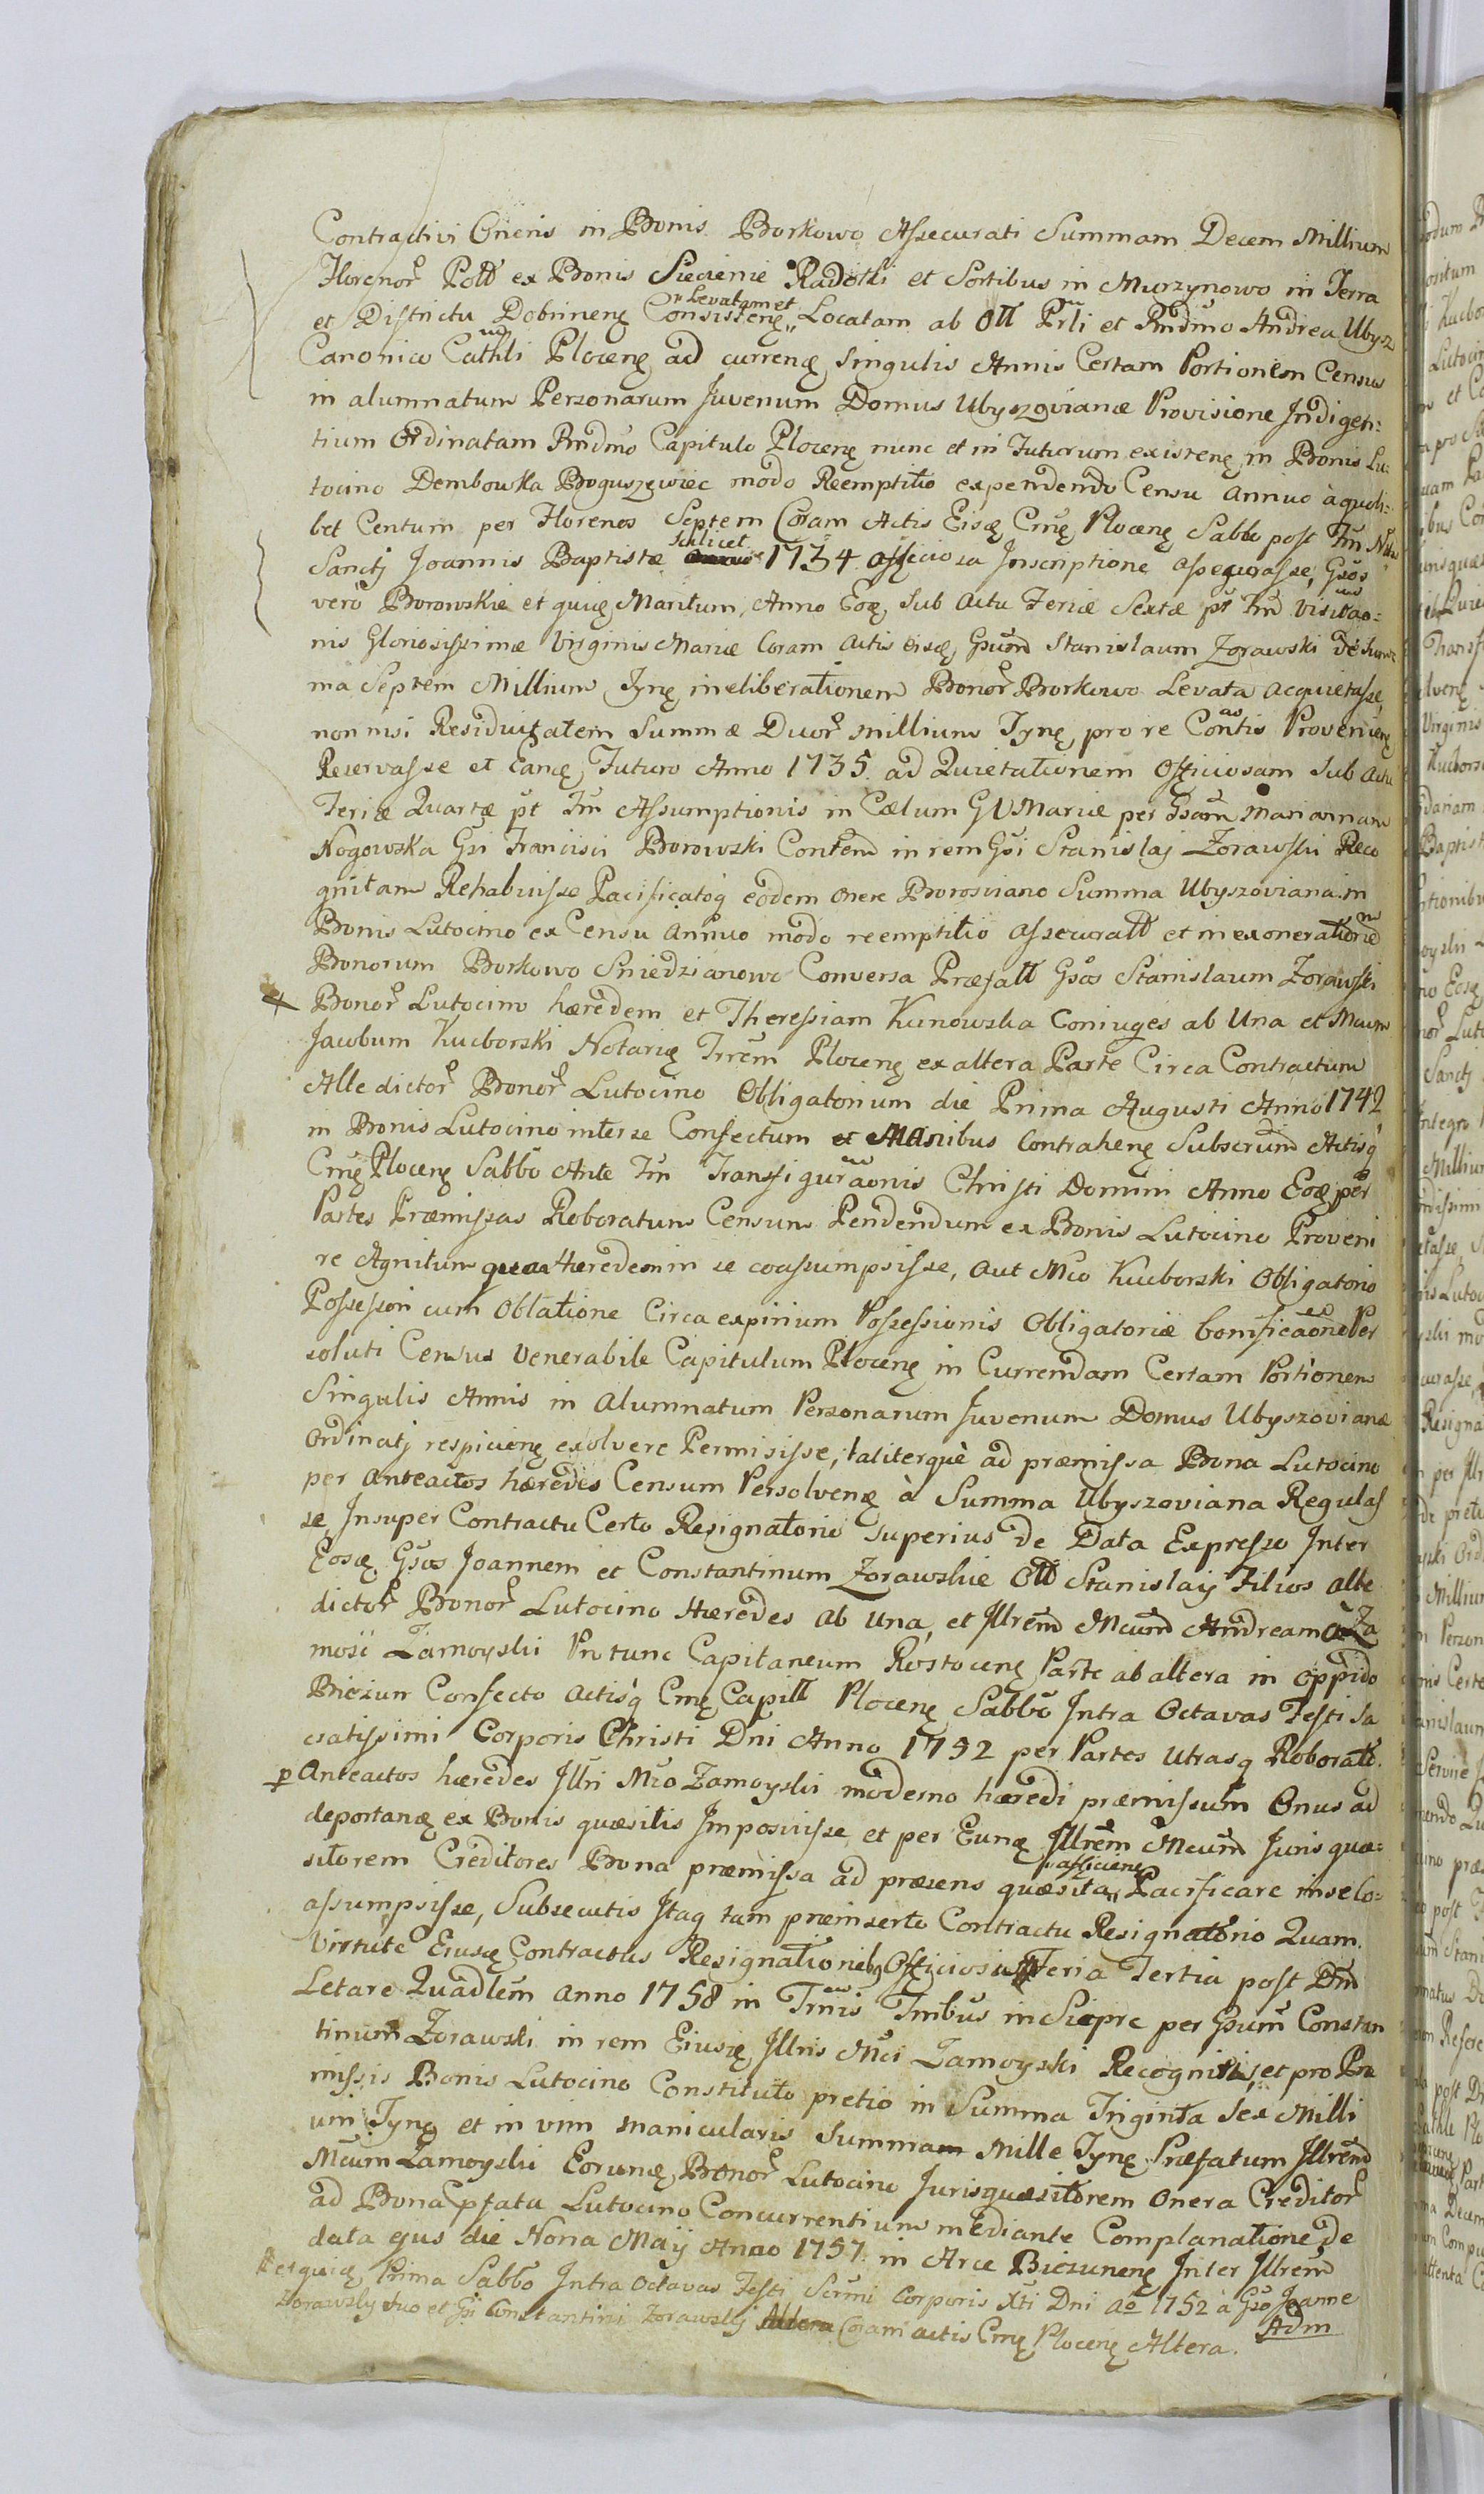 Contractivi Oneris in Bonis Borkowo Assecurati Summam Decem Millium
Florenor Poll ex Bonis Siecienie Radotki et Sortibus in Murzynowo in Terra
et Districtu Dobrinenę Consistenę Levatam et Locatam ab Oll Prli et Rndmo Andrea Ubysz
Canonico Cathli Plocenę ad currenę singulis Annis Certam Portionem Census
in alumnatum Personarum Juvenum Domus Ubyszovianæ Provisione Indigen:
tium Ordinatam Rndmo Capitulo Plocenę nunc et in Futurum existenę in Bonis Lu:
tocino Dembowka Boguszewiec modo Reemptitio expendendo Censu annuo à quoli:
bet Centum per Florenos Septem Coram Actis Eisę Crnę Plocenę Sabbo post Fm
Sancty Joannis Baptistæ scilicet 1734 officiosa Inscriptione assecurasse, Gsos
verò Borowskie et quię Maritum, Anno Eoę, sub actu Feriæ Sextæ pt Fm Visitao=
nis Gloriosissimæ Virginis Mariæ Coram actis eisę, Gsum Stanislaum Zorawski de Sum
ma Septem Millium Fynę in eliberationem Bonor Borkowo Levata acquietasse,
non nisi Residuitatem Summæ Duor millium Fynę pro re Contis Provenienę
Reservasse et Eanę, Futuro Anno 1735 ad Quietationem Officiosam sub actu
Feriæ Quartæ pt Fm Assumptionis in Cælum GVMariæ per Gsam Mariannam
Nogowska Gsi Francisci Borowski Contem in rem Gsi Stanislaj Zorawski Reco
gnitam Rehabuisse Pacificatoq eodem onere Boroviano Summa Ubyszoviana in
Bonis Lutocino ex Censu annuo modo reemptitio assecuratt et in exonerationem
Bonorum Borkowo Sniedzianowo Conversa Præfatt Gsos Stanislaum Zorawski
Bonor Lutocino hæredem et Theressiam Kunowska Coniuges ab Una et Mcum
Jacobum Kucborski Notarię Trrem Plocenę ex altera Parte Circa Contractum
Alle dictor Bonor Lutocino Obligatorium die Prima Augusti Anno 1742
in Bonis Lutocino inter se Confectum et Manibus Contrahenę Subscrum Actisq
Crnę Plocenę Sabbo Ante Fm Transfiguraonis Christi Domini Anno Eoę per
Partes Præmissas Roboratum Censum Pendendum ex Bonis Lutocino Proveni
re Agnitum qua Hæredem in se coassumpsisse, aut Mco Kucborski Obligatorio
Possessori cum Oblatione Circa expirium Possessionis Obligatoriæ bonificaone Per
soluti Census Venerabile Capitulum Plocenę in Currendam Certam Portionem
Singulis Annis in Alumnatum Personarum Juvenum Domus Ubyszovianæ
Ordinatj respicienę exolvere Permisisse, taliterquè ad præmissa Bona Lutocino
per Anteactos hæredes Censum Persolvenę à Summa Ubyszoviana Regulas
se, Insuper Contractu Certo Resignatorio superius de Data Expresso Inter
Eosę Gsos Joannem et Constantinum Zorawskie Oll Stanislaij Filios alle
dictor Bonor Lutocino Hæredes ab Una, et Jllrem Mcum Andream à Za
mosc Zamoyski Protunc Capitaneum Rostocenę Parte ab altera in oppido
Biezun Confecto actisq Crnę Capitt Plocenę Sabbo Intra Octavas Festi Sa
cratissimi Corporis Christi Dni Anno 1752 per Partes Utrasq Roboratt.
p Anteactos hæredes Jllri Mco Zamoyski moderno hæredi præmissum Onus ad
deportanę ex Bonis quæsitis Imposuisse et per Eunę Jllrem Mcum Juris quæ=
sitorem Creditores Bona præmissa ad præsens quæsita afficienę Pacificare in se co=
assumpsisse, Subsecutis Itaq tam præinserto Contractu Resignatorio Quam
Virtute Eiusę Contractus Resignationibq Officiosis Feria Tertia post Dm
Letare Quadlem Anno 1758 in Trnis Tmibus in Siepre per Gsum Constan
tinum Zorawski in rem Eiusię Jllris Mci Zamoyski Recognitis, et pro Præ
missis Bonis Lutocino Constituto pretio in Summa Triginta Sex Milli
um Fynę et in vim manicularis Summam Mille Fynę Præfatum Jllrem
Mcum Zamoyski Eorunę Bonor Lutocino Jurisquæsitorem Onera Creditor
ad Bona pfata Lutocino Concurrentium mediante Complanatione de
data ejus die Nona Maij Anno 1757 in Arce Biezunenę Inter Jllrem
et quię Prima Sabbo Intra Octavas Festi Scrmi Corporis Xti Dni Ao 1752 à Gso Joanne
Zorawsky suo et Gsi Constantini Zorawsky Coram actis Crnę Plocenę Altera.
Adm